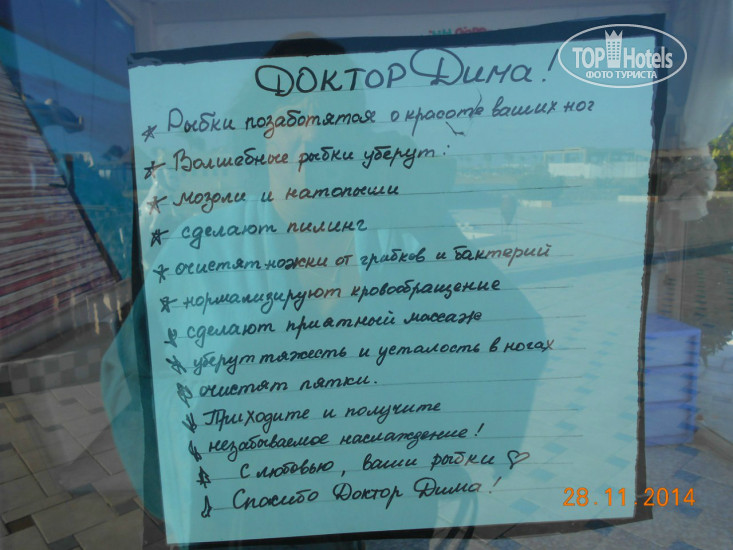 TOP Hotels
ФОТО ТУРИСТА
ДОКТОР ДИМА!
* Рыбки позаботятся о красоте ваших ног
* Волшебные рыбки уберут:
* мозоли и натопыши
* сделают пилинг
* очистят ножки от грибков и бактерий
* нормализируют кровообращение
* сделают приятный массаж
* уберут тяжесть и усталость в ногах
* очистят пятки.
* Приходите и получите
* незабываемое наслаждение!
* С любовью, ваши рыбки ♡
Спасибо Доктор Дима!
28.11.2014